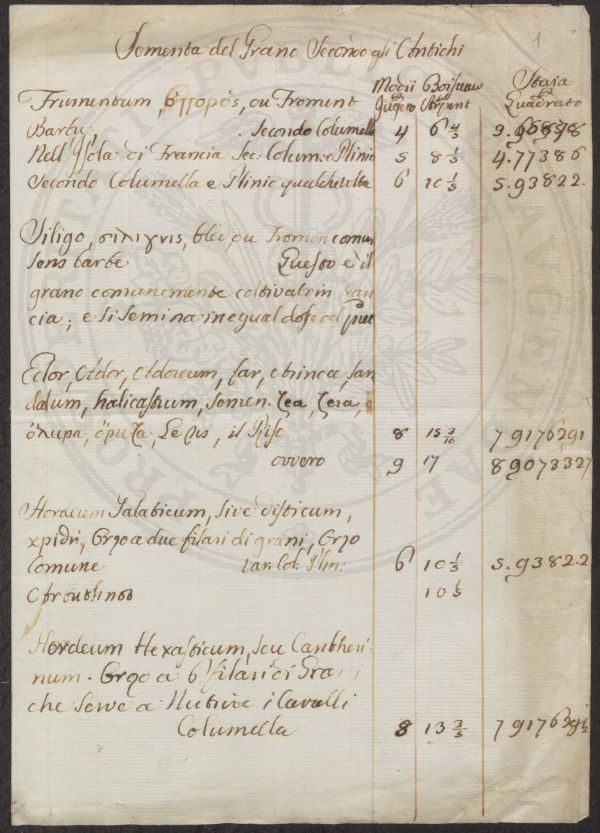 1
Sementa del Grano Secondo gli Antichi
Modii Staja
Jugero Quadrato
Frumentum, ou Froment
Barbu, Secondo Columell 4 6 4/5
Nell' Isola di Francia Sec. Colum. e Plinio 5 8 1/5 4.77386
Secondo Columella e Plinio qualche volta 6 10 1/5 5.93822.
Siligo, σιλιγνις, bled ou Fromen comun
sens barbe Questo è il
grano comunemente coltivato in Fran
cia; e si semina in egual dose del
Edor, Ador, Adoreum, far, San
dalum, halicastrum, Semen. Zea, Zeia,
ὄλυρα, ὄρυζα, il Riso 8 15 3/10 7 9176391
ovvero 9 17 89073327
Hordeum Galaticum, sive disticum,
Orzo a due filari di grani, Orzo
Comune Var. Col. Plin: 6 10 1/5 5.9382.2
10 1/5
Hordeum Hexasticum, seu Cantheri-
num. Orzo a 6 filari di Grani
che serve a Nutrire i Cavalli
Columella 8 13 3/5